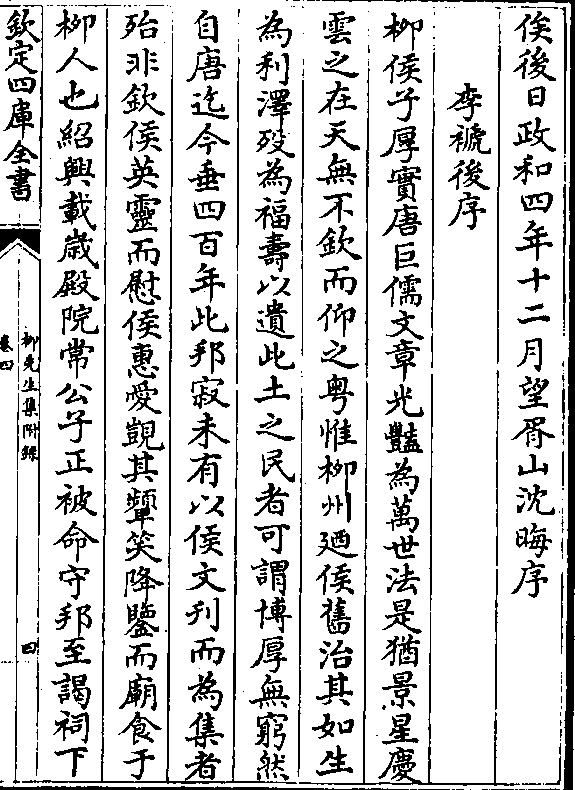 俟後日政和四年十二月望胥山沈晦序
李禠後序
柳侯子厚實唐巨儒文章光豔為萬世法是猶景星慶
雲之在天無不欽而仰之粤惟柳州廼侯舊治其如生
為利澤殁為福壽以遺此土之民者可謂博厚無窮然
自唐迄今垂四百年此邦寂未有以侯文刊而為集者
殆非欽侯英靈而慰侯惠愛覬其顰笑降鑒而廟食于
柳人也紹興載歲殿院常公子正被命守邦至謁祠下
欽定四庫全書
柳先生集附錄
卷四
四